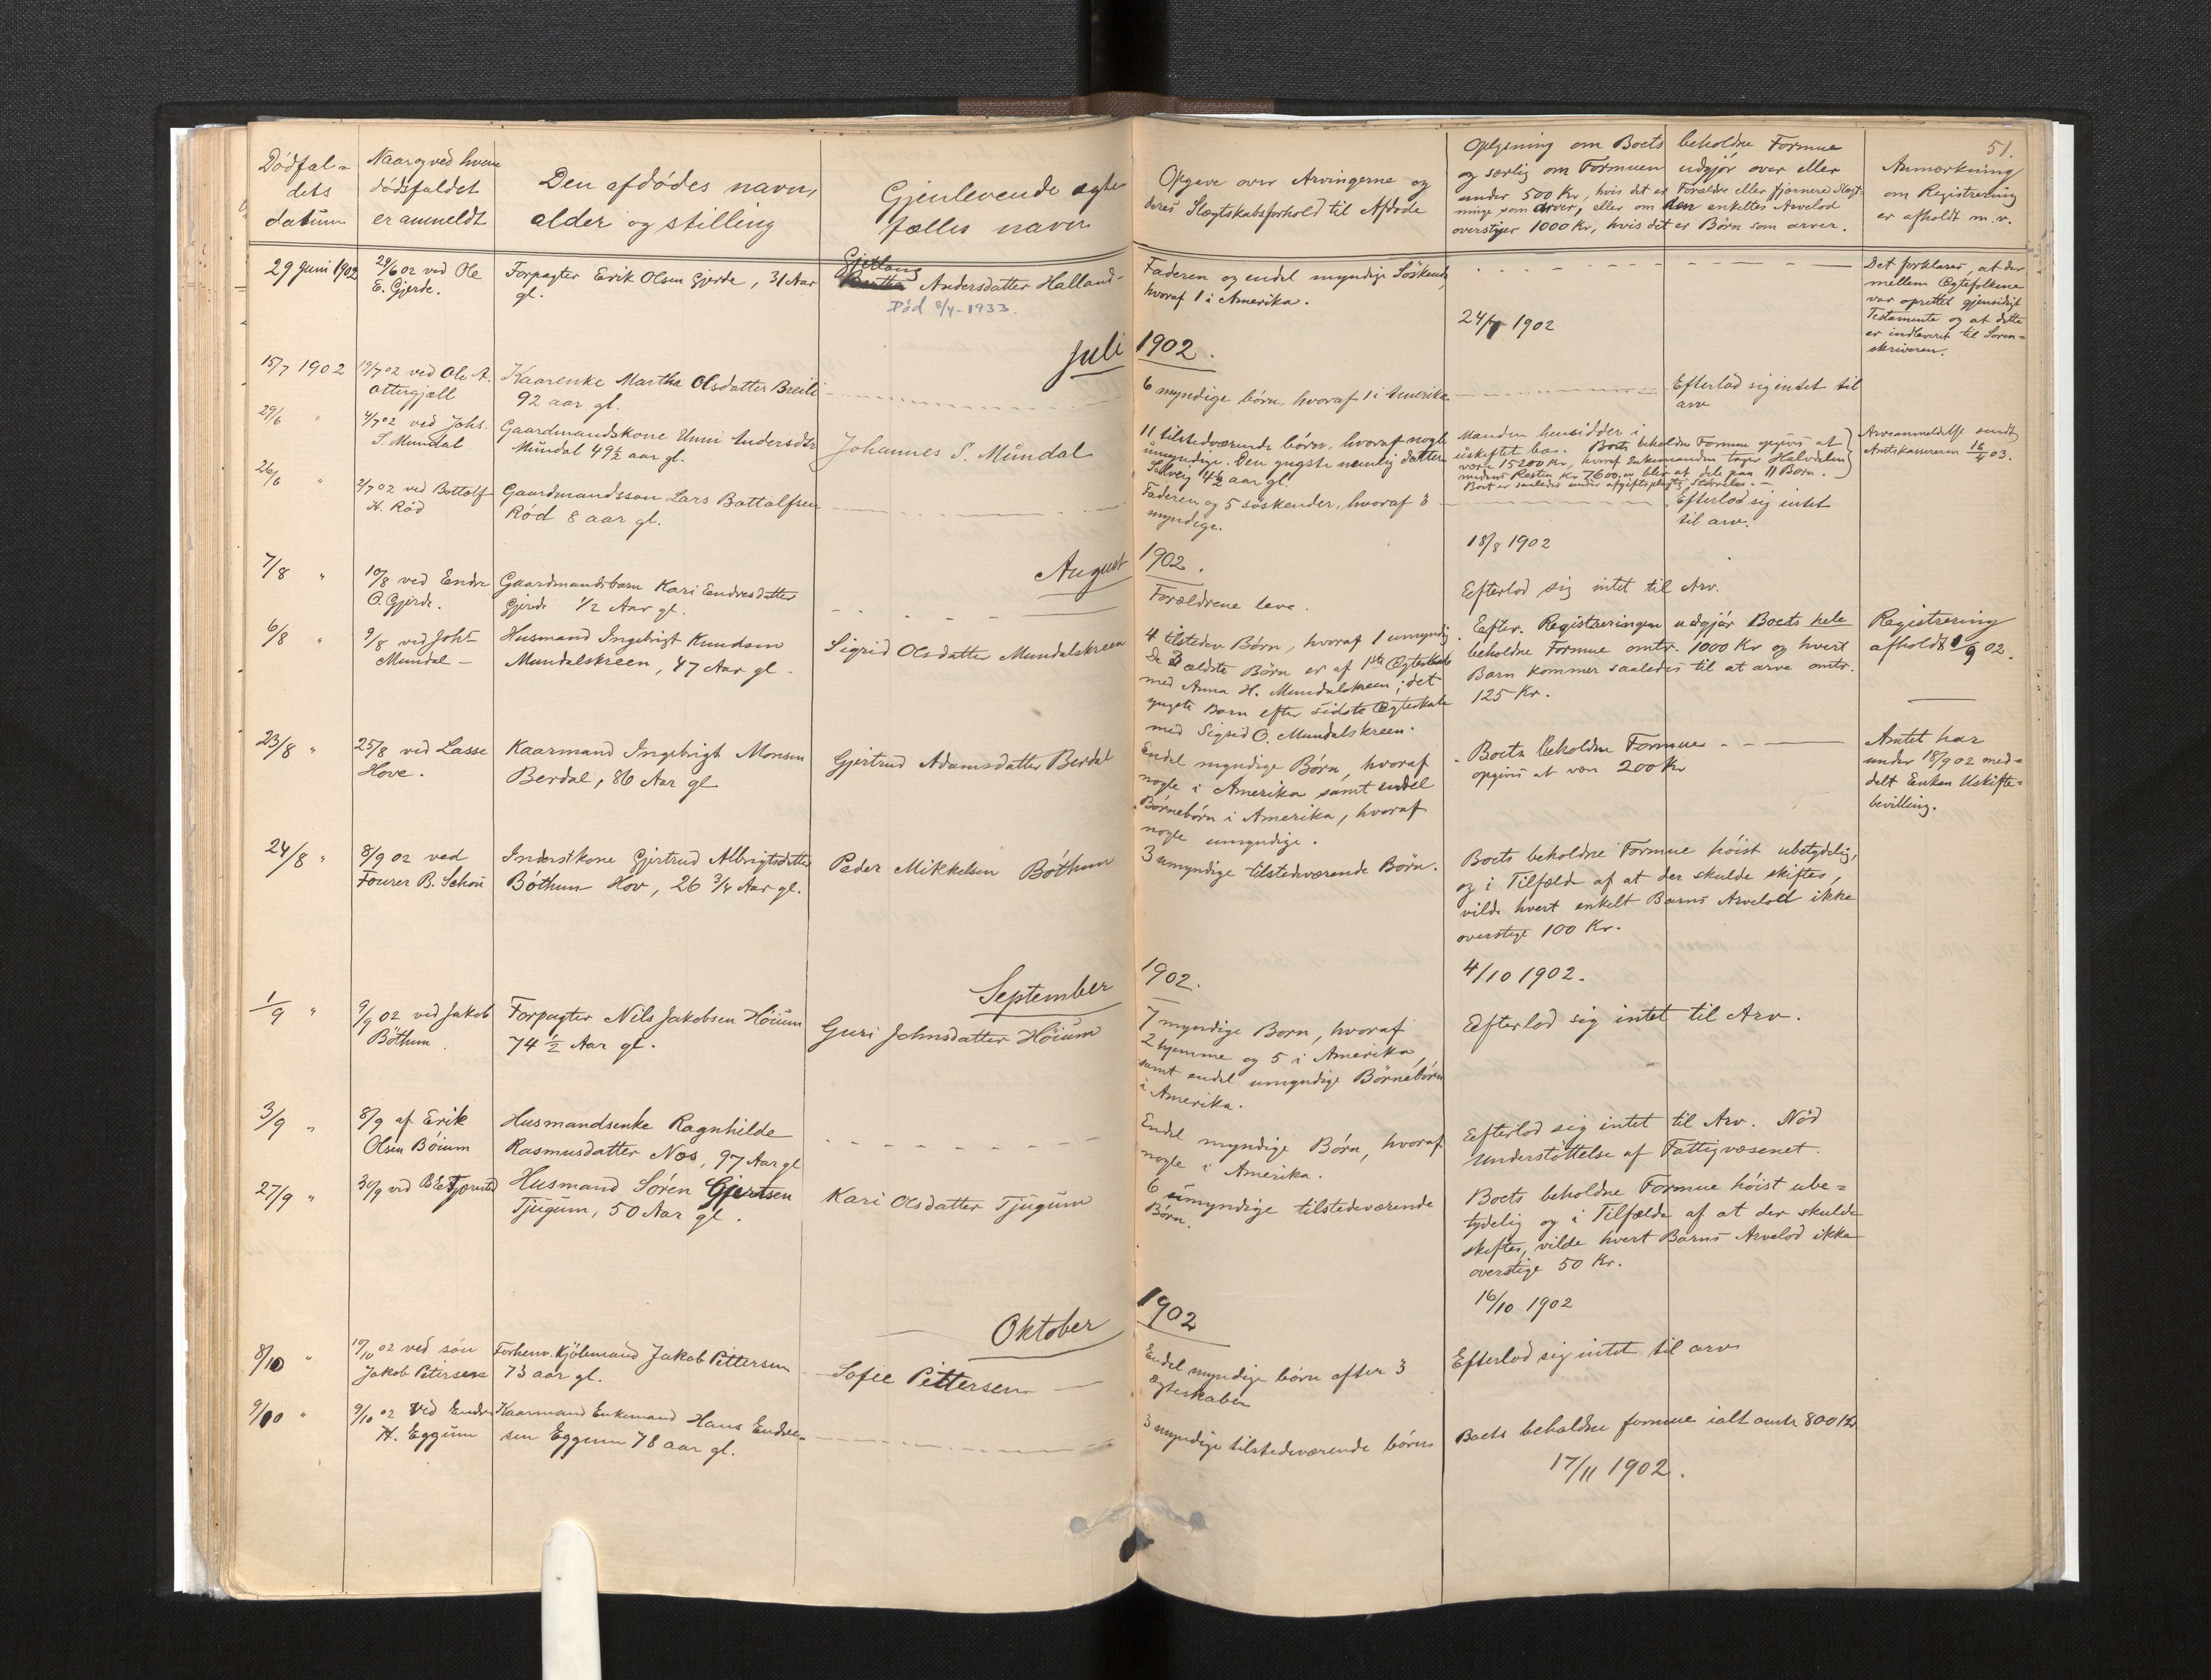 51.
Dödfal-
dets
datum
Naar og ved hvem
dödsfaldet
er anmeldt
Den afdödes navn,
alder og stilling
Gjenlevende ægte-
fælles navn
Opgave over Arvingerne og
deres Slægtskabsforhold til Afdøde
Oplysning om Boets beholdne Formue
og særlig om Formuen udgjør over eller
under 500 Kr, hvis det er Forældre eller fjernere Slægt-
ninge som arver, eller om den enkeltes Arvelod
overstiger 1000 Kr, hvis det er Børn som arver.
Anmærkning
om Registrering
er afholdt m.v.
29 Juni 1902
29/6 02 ved Ole
E. Gjerde.
Forpagter Erik Olsen Gjerde, 31 Aar
gl.
Andersdatter Halland
Död 8/4-1933.
Faderen og endel myndige Söskende,
hvoraf 1 i Amerika.
24/7 1902
Det forklares, at der
mellem Ægtefolkene
var oprettet gjensidigt
Testamente og at dette
er indleveret til Soren-
skriveren.
Juli 1902.
15/7 1902
19/7 02 ved Ole A.
Ottergjell
Kaarenke Martha Olsdatter Breili
92 aar gl.
6 myndige børn, hvoraf 1 i Amerika
Efterlod sig intet til
arv
29/6 "
4/7 02 ved Johs.
S. Mundal
Gaardmandskone Unni Andersdtr
Mundal 49½ aar gl.
Johannes S. Mundal
11 tilstedværende børn, hvoraf nogle
umyndige. Den yngste nemlig datter
Solveig 4½ aar gl.
Manden hensidder i
uskiftet bo. Boets beholdne Formue opgives at
være 15200 Kr, hvoraf Enkemanden tager Halvdelen
medens Resten Kr 7600.00 blir at dele paa 11 Børn.
Boet er saaledes under afgiftspligtig Størrelse.-
Arveanmeldelse sendt
Amtskassereren 16/4 03.
26/6 "
2/7 02 ved Bottolf
H. Röd
Gaardmandssøn Lars Bottolfsen
Röd 8 aar gl.
Faderen og 5 söskender, hvoraf 3
myndige.
Efterlod sig intet
til arv.
18/8 1902
August 1902.
7/8 "
10/8 ved Endre
O. Gjerde.
Gaardmandsbarn Kari Endresdatter
Gjerde 1/2 Aar gl.
Forældrene leve.
Efterlod sig intet til Arv.
6/8 "
9/8 ved Johs
Mundal -
Husmand Ingebrigt Knudsen
Mundalskreen, 47 Aar gl.
Sigrid Olsdatter Mundalskreen
4 tilstedev Børn, hvoraf 1 umyndig.
De 3 ældste Børn er af 1ste Ægteskab
med Anna H. Mundalskreen; det
yngste Barn efter sidste Ægteskab
med Sigrid O. Mundalskreen.
Efter Registreringen udgjør Boets hele
beholdne Formue omtr. 1000 Kr og hvert
Barn kommer saaledes til at arve omtr.
125 Kr.
Registrering
afholdt 1/9 02.
23/8 "
25/8 ved Lasse
Hove.
Kaarmand Ingebrigt Monsen
Berdal, 86 Aar gl
Gjertrud Adamsdatter Berdal
Endel myndige Børn, hvoraf
nogle i Amerika samt endel
Børnebørn i Amerika, hvoraf
nogle umyndige.
Boets beholdne Formue
opgives at være 200 Kr
Amtet har
under 18/9 02 med-
delt Enken Uskifte-
bevilling.
24/8 "
8/9 02 ved
Fourer B. Schou
Inderstkone Gjertrud Albrigtsdatter
Böthun Hov, 26 3/4 Aar gl.
Peder Mikkelsen Böthun
3 umyndige tilstedeværende Børn.
Boets beholdne Formue høist ubetydelig,
og i Tilfælde af at der skulde skiftes,
vilde hvert enkelt Barns Arvelod ikke
overstige 100 Kr.
4/10 1902.
September 1902.
1/9 "
9/9 02 ved Jakob
Böthun
Forpagter Nils Jakobsen Höium
74 ½ Aar gl.
Guri Johnsdatter Höium
7 myndige Børn, hvoraf
2 hjemme og 5 i Amerika,
samt endel umyndige Børnebørn
i Amerika.
Efterlod sig intet til Arv.
3/9 "
8/9 af Erik
Olsen Böium
Husmandsenke Ragnhilde
Rasmusdatter Nos, 97 Aar gl
Endel myndige Børn, hvoraf
nogle i Amerika.
Efterlod sig intet til Arv. Nöd
Understöttelse af Fattigvæsenet.
27/9 "
30/9 ved
Husmand Sören Gjertsen
Tjugum, 50 Aar gl.
Kari Olsdatter Tjugum
6 umyndige tilstedeværende
Børn.
Boets beholdne Formue høist ube-
tydelig og i Tilfælde af at der skulde
skiftes, vilde hvert Barns Arvelod ikke
overstige 50 Kr.
16/10 1902
Oktober 1902
8/10 "
10/10 02 ved søn
Jakob Petersen
Forhenv. Kjöbmand Jakob Pettersen
73 aar gl.
Sofie Pettersen
Endel myndige børn efter 3
ægteskaber
Efterlod sig intet til arv
9/10 "
9/10 02 ved Endre
H. Eggum
Kaarmand Enkemand Hans Endre-
sen Eggum 78 aar gl.
3 myndige tilstedeværende børn
Boets beholdne formue ialt omtr 800 Kr
17/11 1902.